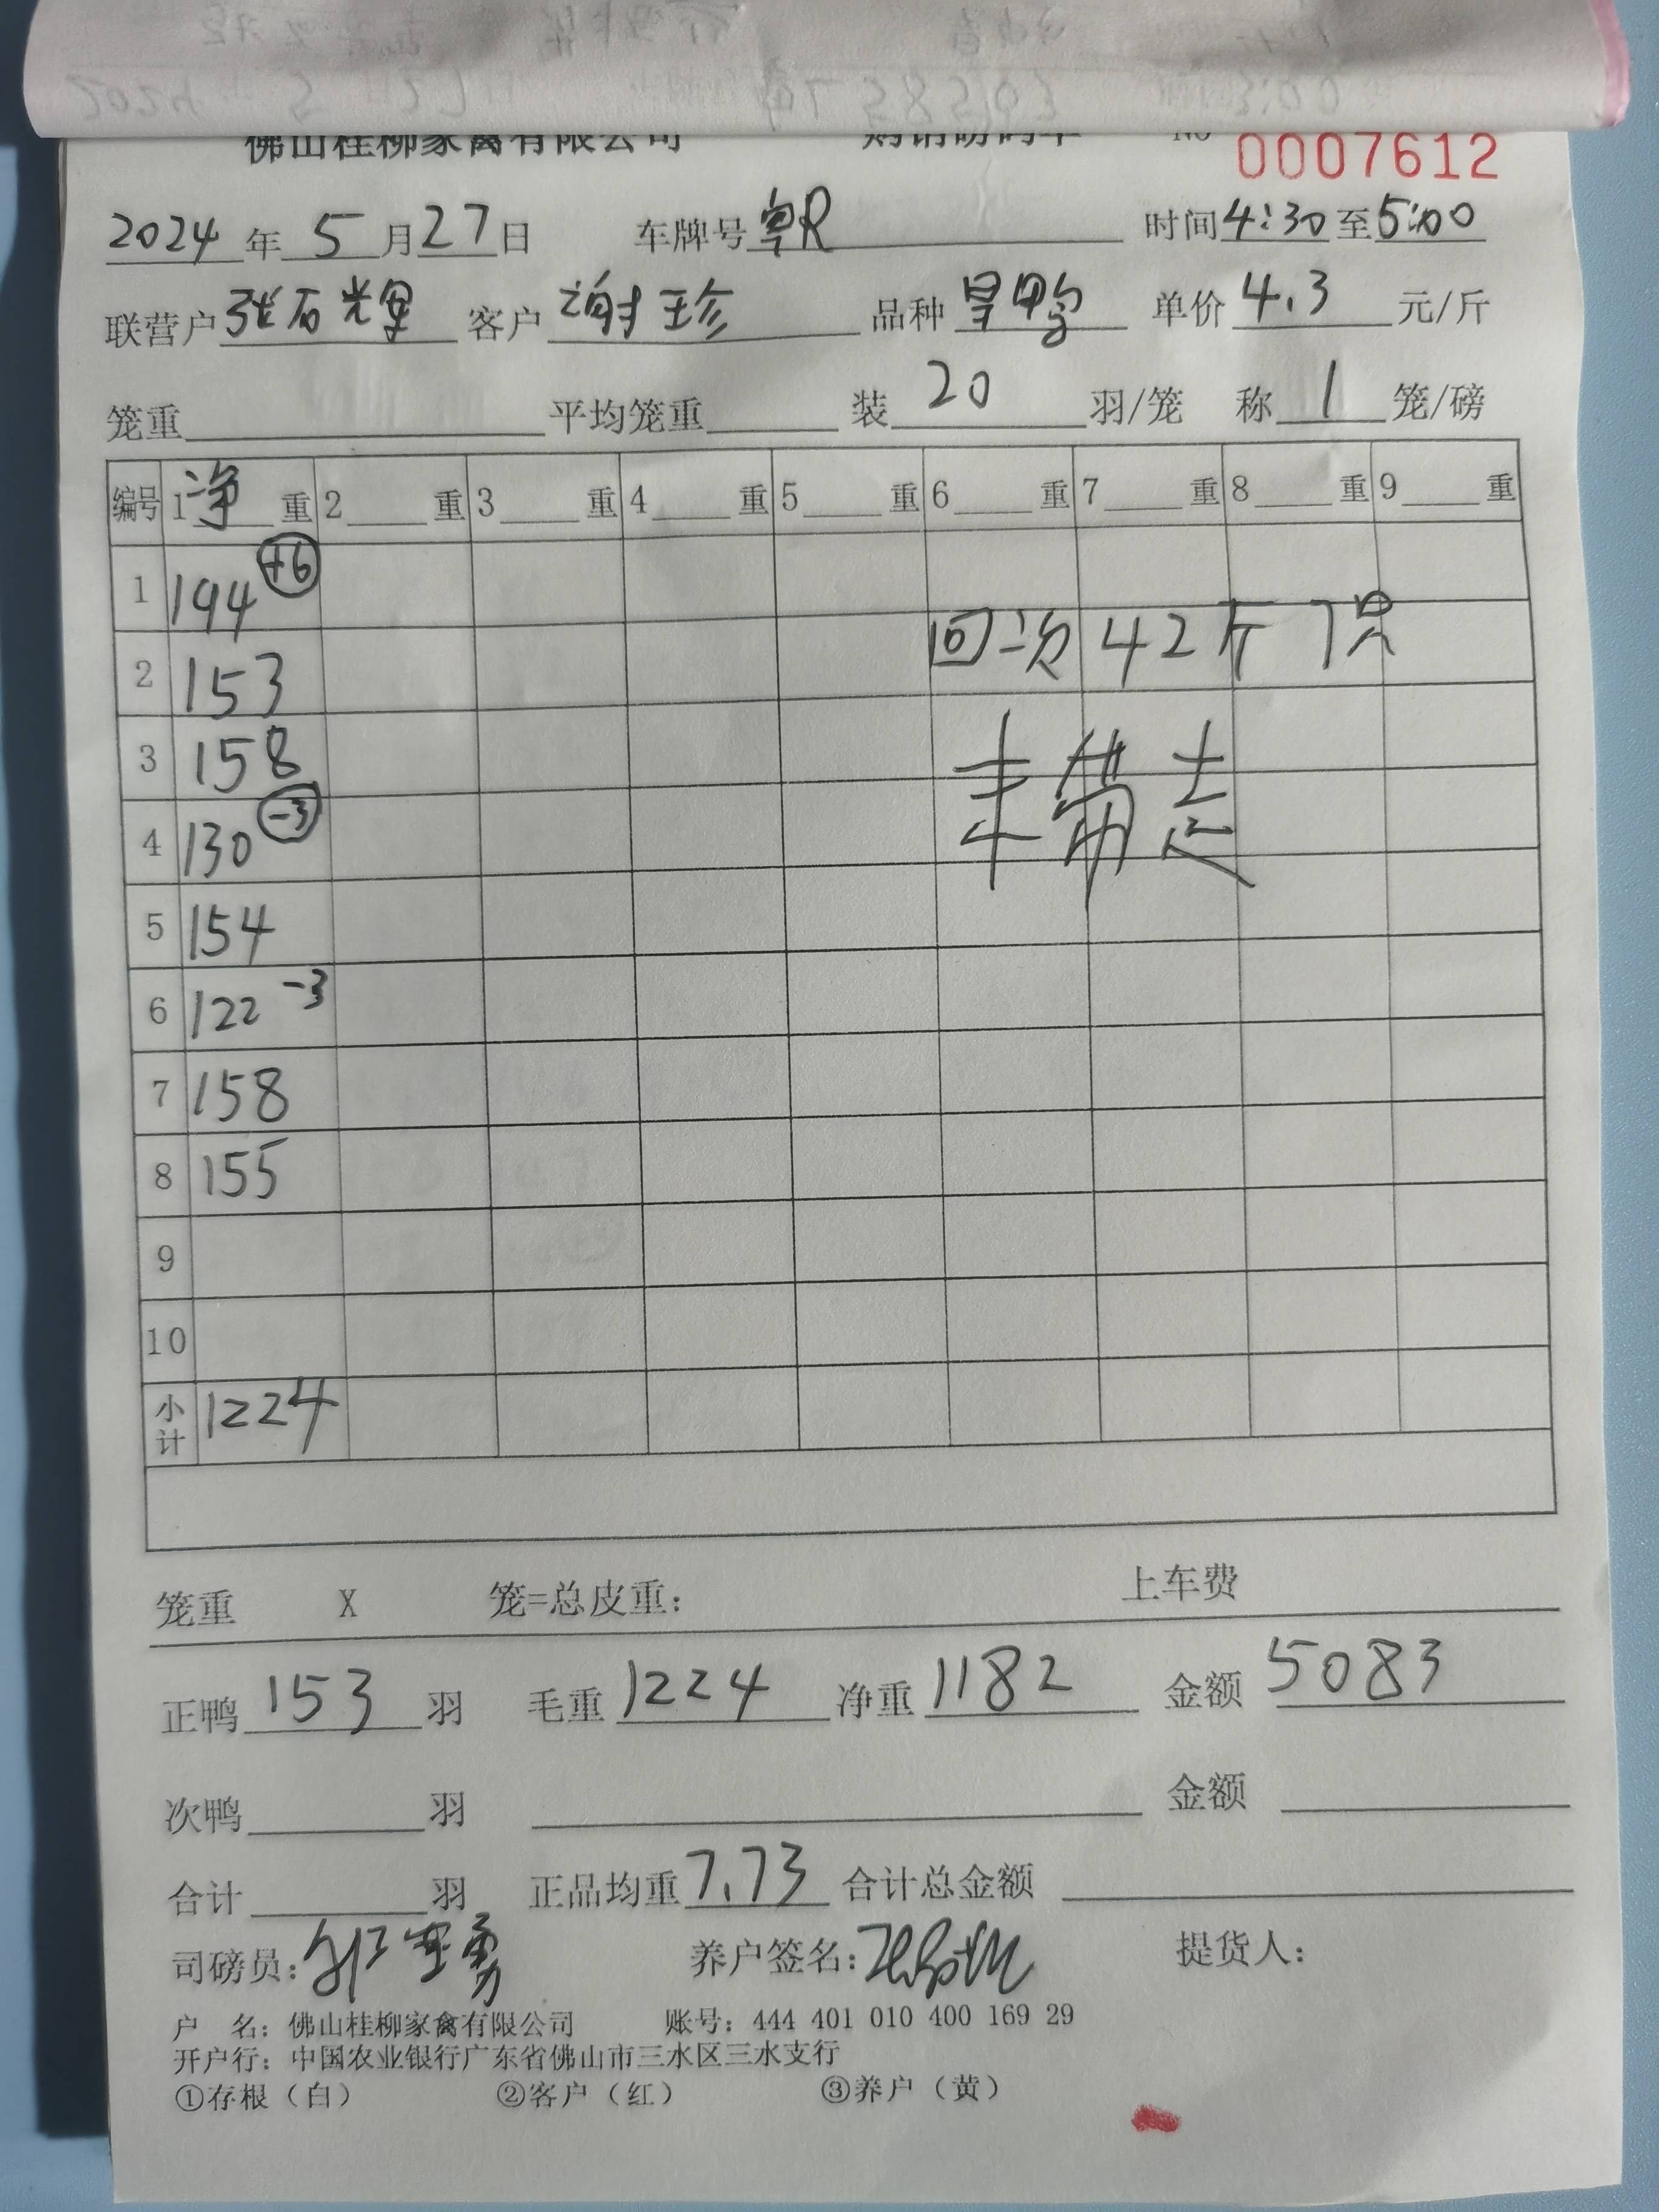 佛山桂柳家禽有限公司 购销磅码单 No 0007612
2024年5月27日 车牌号粤R 时间4:30至5:00
联营户张石光 客户谢珍 品种旱鸭 单价4.3元/斤
笼重 平均笼重 装20羽/笼 称1笼/磅
编号 1净重 2重 3重 4重 5重 6重 7重 8重 9重
1 194 +6
2 153 回次42斤7只
3 158 未带走
4 130 -3
5 154
6 122 -3
7 158
8 155
9
10
小计 1224
笼重 X 笼=总皮重: 上车费
正鸭153羽 毛重1224 净重1182 金额5083
次鸭 羽 金额
合计 羽 正品均重7.73 合计总金额
司磅员: 养户签名: 提货人:
户 名: 佛山桂柳家禽有限公司 账号: 444 401 010 400 169 29
开户行: 中国农业银行广东省佛山市三水区三水支行
①存根(白) ②客户(红) ③养户(黄)